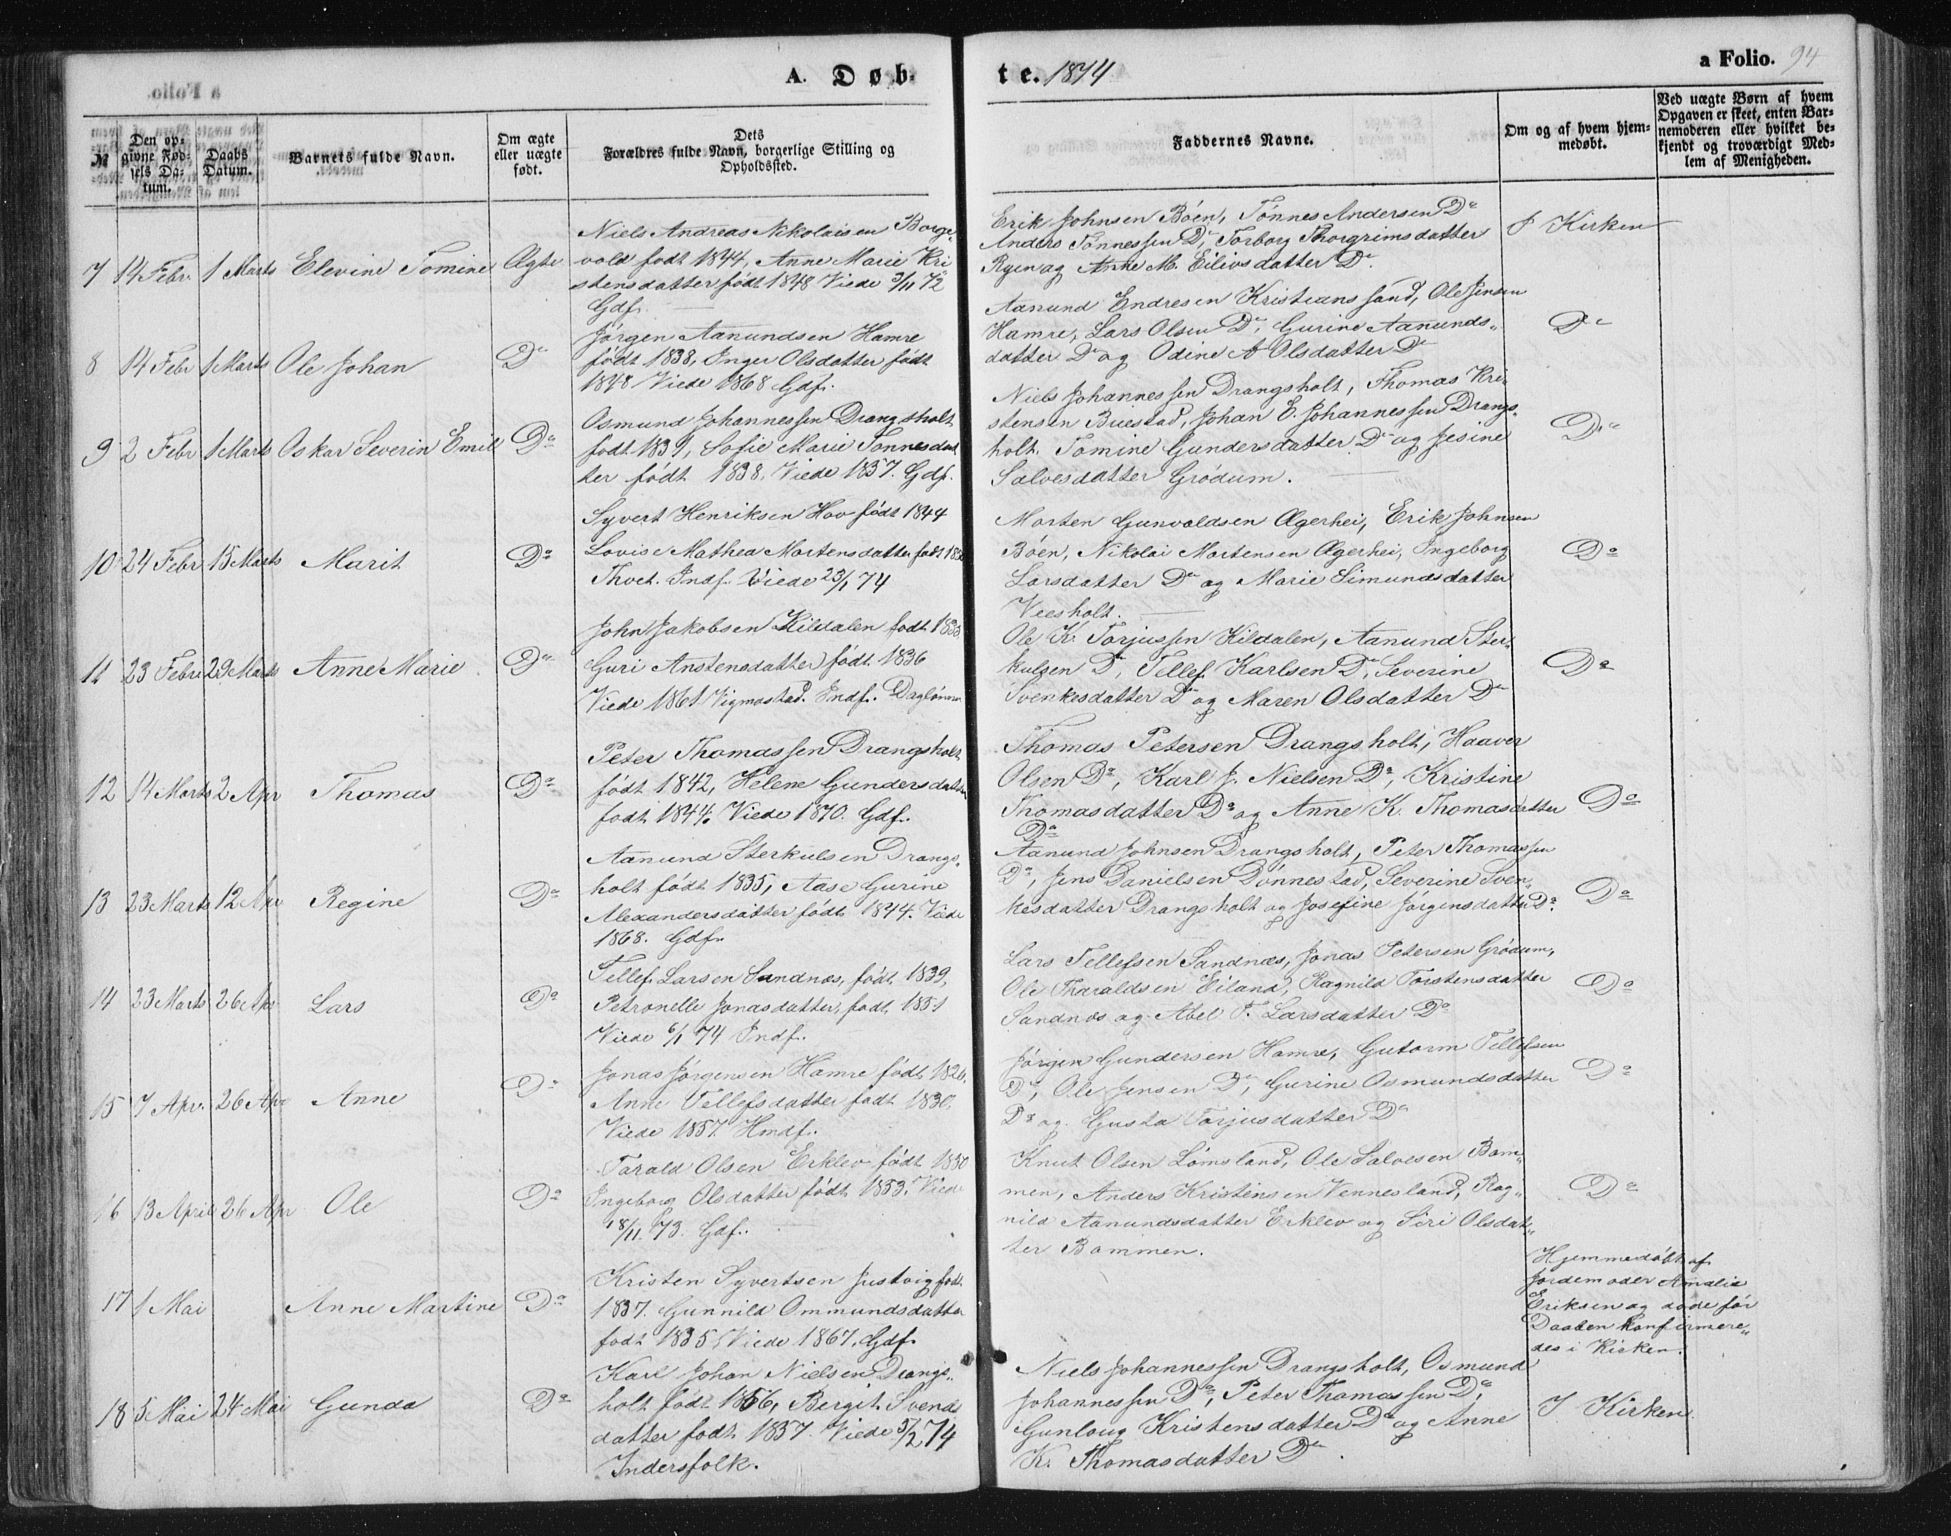 A. Døb-
te. 1874
a Folio. 94
№
Den op-
givne Fød-
sels Da-
tum.
Daabs
Datum.
Barnets fulde Navn.
Om ægte
eller uægte
født.
Dets
Forældres fulde Navn, borgerlige Stilling og
Opholdssted.
Faddernes Navne.
Om og af hvem hjem-
medøbt.
Ved uægte Børn af hvem
Opgaven er skeet, enten Bar-
nemoderen eller hvilket be-
kjendt og troværdigt Med-
lem af Menigheden.
7 14 Febr. 1 Marts Elevine Tomine Ægte
Niels Andreas Nikolaisen Borge-
vold født 1844, Anne Marie Kri
stensdatter født 1848 Viede 3/11 72
Gdf.
Erik Johnsen Bøen, Tønnes Andersen Do
Anders Tønnessen Do, Torborg Thorgrimsdatter
Ryen og Anne M. Eilivsdatter Do.
I Kirken
8 14 Febr 1 Marts Ole Johan Do
Jørgen Aanundsen Hamre
født 1838, Inger Olsdatter født
1848 Viede 1868 Gdf.
Aanund Endresen Kristianssand, Ole Jensen
Hamre, Lars Olsen Do, Gurine Aanunds-
datter Do og Odine A Olsdatter Do
Do
9 2 Febr 1 Marts Oskar Severin Emil Do
Osmund Johannessen Drangsholt
født 1839, Sofie Marie Tønnesdat
ter født 1838. Viede 1857. Gdf.
Niels Johannessen Drangsholt, Thomas Kri-
stensen Buestad, Johan E. Johannessen Drangs-
holt. Tomine Gundersdatter Do og Jesine
Salvesdatter Grødum.
Do
10 24 Febr 15 Marts Marit Do
Syvert Henriksen Hov født 1844
Lovise Mathea Mortensdatter født
Thvet. Indf. Viede 23/1 74
Morten Gunvaldsen Ægerhei, Erik Johnsen
Bøen, Nikolai Mortensen Ægerhei, Ingeborg
Larsdatter Do og Marie Simundsdatter
Veesholt.
Do
11 23 Febr 29 Marts Anne Marie Do
John Jakobsen Kildalen født
Guri Anstensdatter født 1836
Viede 1861 Vigmostad. Indf. Daglønner
Ole K. Torjussen Kildalen, Aanund Ster-
kulsen Do, Tellef Karlsen Do, Severine
Svenkesdatter Do og Maren Olsdatter Do
Do
12 14 Marts 2 Apr Thomas Do
Peter Thomassen Drangsholt
født 1842, Helene Gundersdatter
født 1844. Viede 1870. Gdf.
Thomas Petersen Drangsholt, Haaver
Olsen Do, Karl J. Nielsen Do, Kristine
Thomasdatter Do og Anne K. Thomasdatter
Do
Do
13 23 Marts 12 Apr Regine Do
Aanund Sterkulsen Drangs-
holt født 1835, Aase Gurine
Alexandersdatter født 1844. Viede
1868. Gdf.
Aanund Johnsen Drangsholt, Peter Thomassen
Do, Jens Danielsen Dønnestad, Severine Sven-
kesdatter Drangsholt og Josefine Jørgensdatter Do.
Do
14 23 Marts 26 Apr Lars Do
Tellef Larsen Sandnæs, født 1839,
Petronelle Jonasdatter, født 1851
Viede 6/1 74 Indf.
Lars Tellefsen Sandnæs, Jonas Petersen Grødum,
Ole Tharaldsen Eiland, Ragnild Torstensdatter
Sandnæs og Abel T. Larsdatter Do
Do
15 7 Apr. 26 Apr Anne Do
Jonas Jørgensen Hamre født 1826,
Anne Tellefsdatter født 1830.
Viede 1857. Hmdf.
Jørgen Gundersen Hamre, Gutorm Tellefsen
Do, Ole Jensen Do, Gurine Osmundsdatter
Do og Gusta Torjusdatter Do
Do
16 13 April 26 Apr Ole Do
Tarald Olsen Erklev født 1830
Ingeborg Olsdatter født 1853. Viede
18/11 73. Gdf.
Knut Olsen Lømsland, Ole Salvesen Bom-
men, Anders Kristensen Vennesland, Rag-
nild Aanundsdatter Erklev og Siri Olsdat-
ter Bommen.
Do
17 1 Mai Anne Martine Do
Kristen Syvertsen Justvig født
1837. Gunnild Ommundsdatter
født 1835, Viede 1867. Gdf.
Hjemmedøbt af
Jordemoder Amalie
Eriksen og døde før
Daaben konfirmere-
des i Kirken.
18 5 Mai 24 Mai Gunda Do
Karl Johan Nielsen Drangs-
holt født 1856, Bergit Svends
datter født 1857. Viede 5/2 74
Inderstfolk.
Niels Johannessen Drangsholt, Osmund
Johannessen Do, Peter Thomassen Do,
Gunloug Kristensdatter Do og Anne
K. Thomasdatter Do.
I Kirken